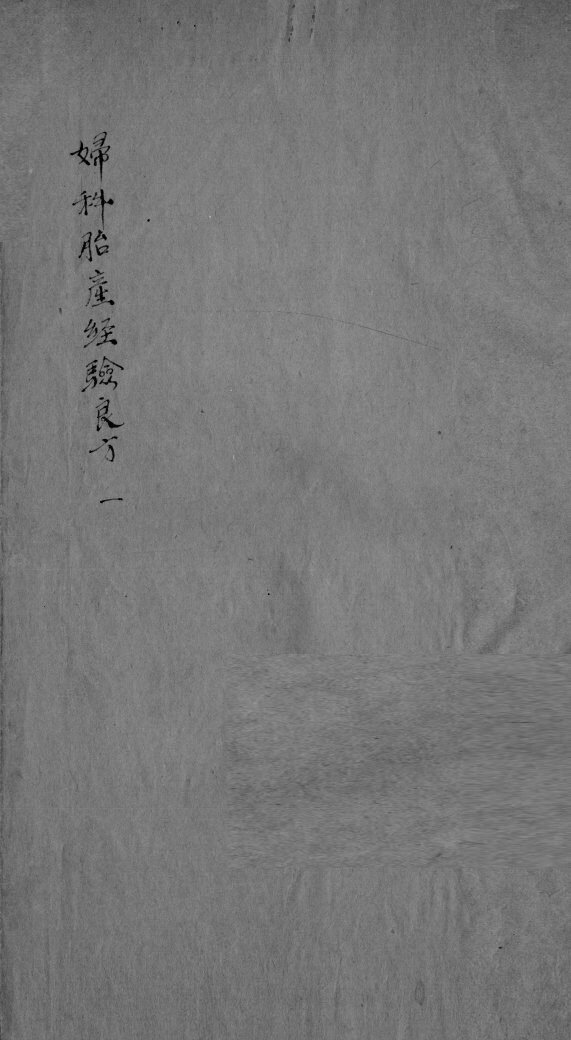 婦科胎産經驗良方 一